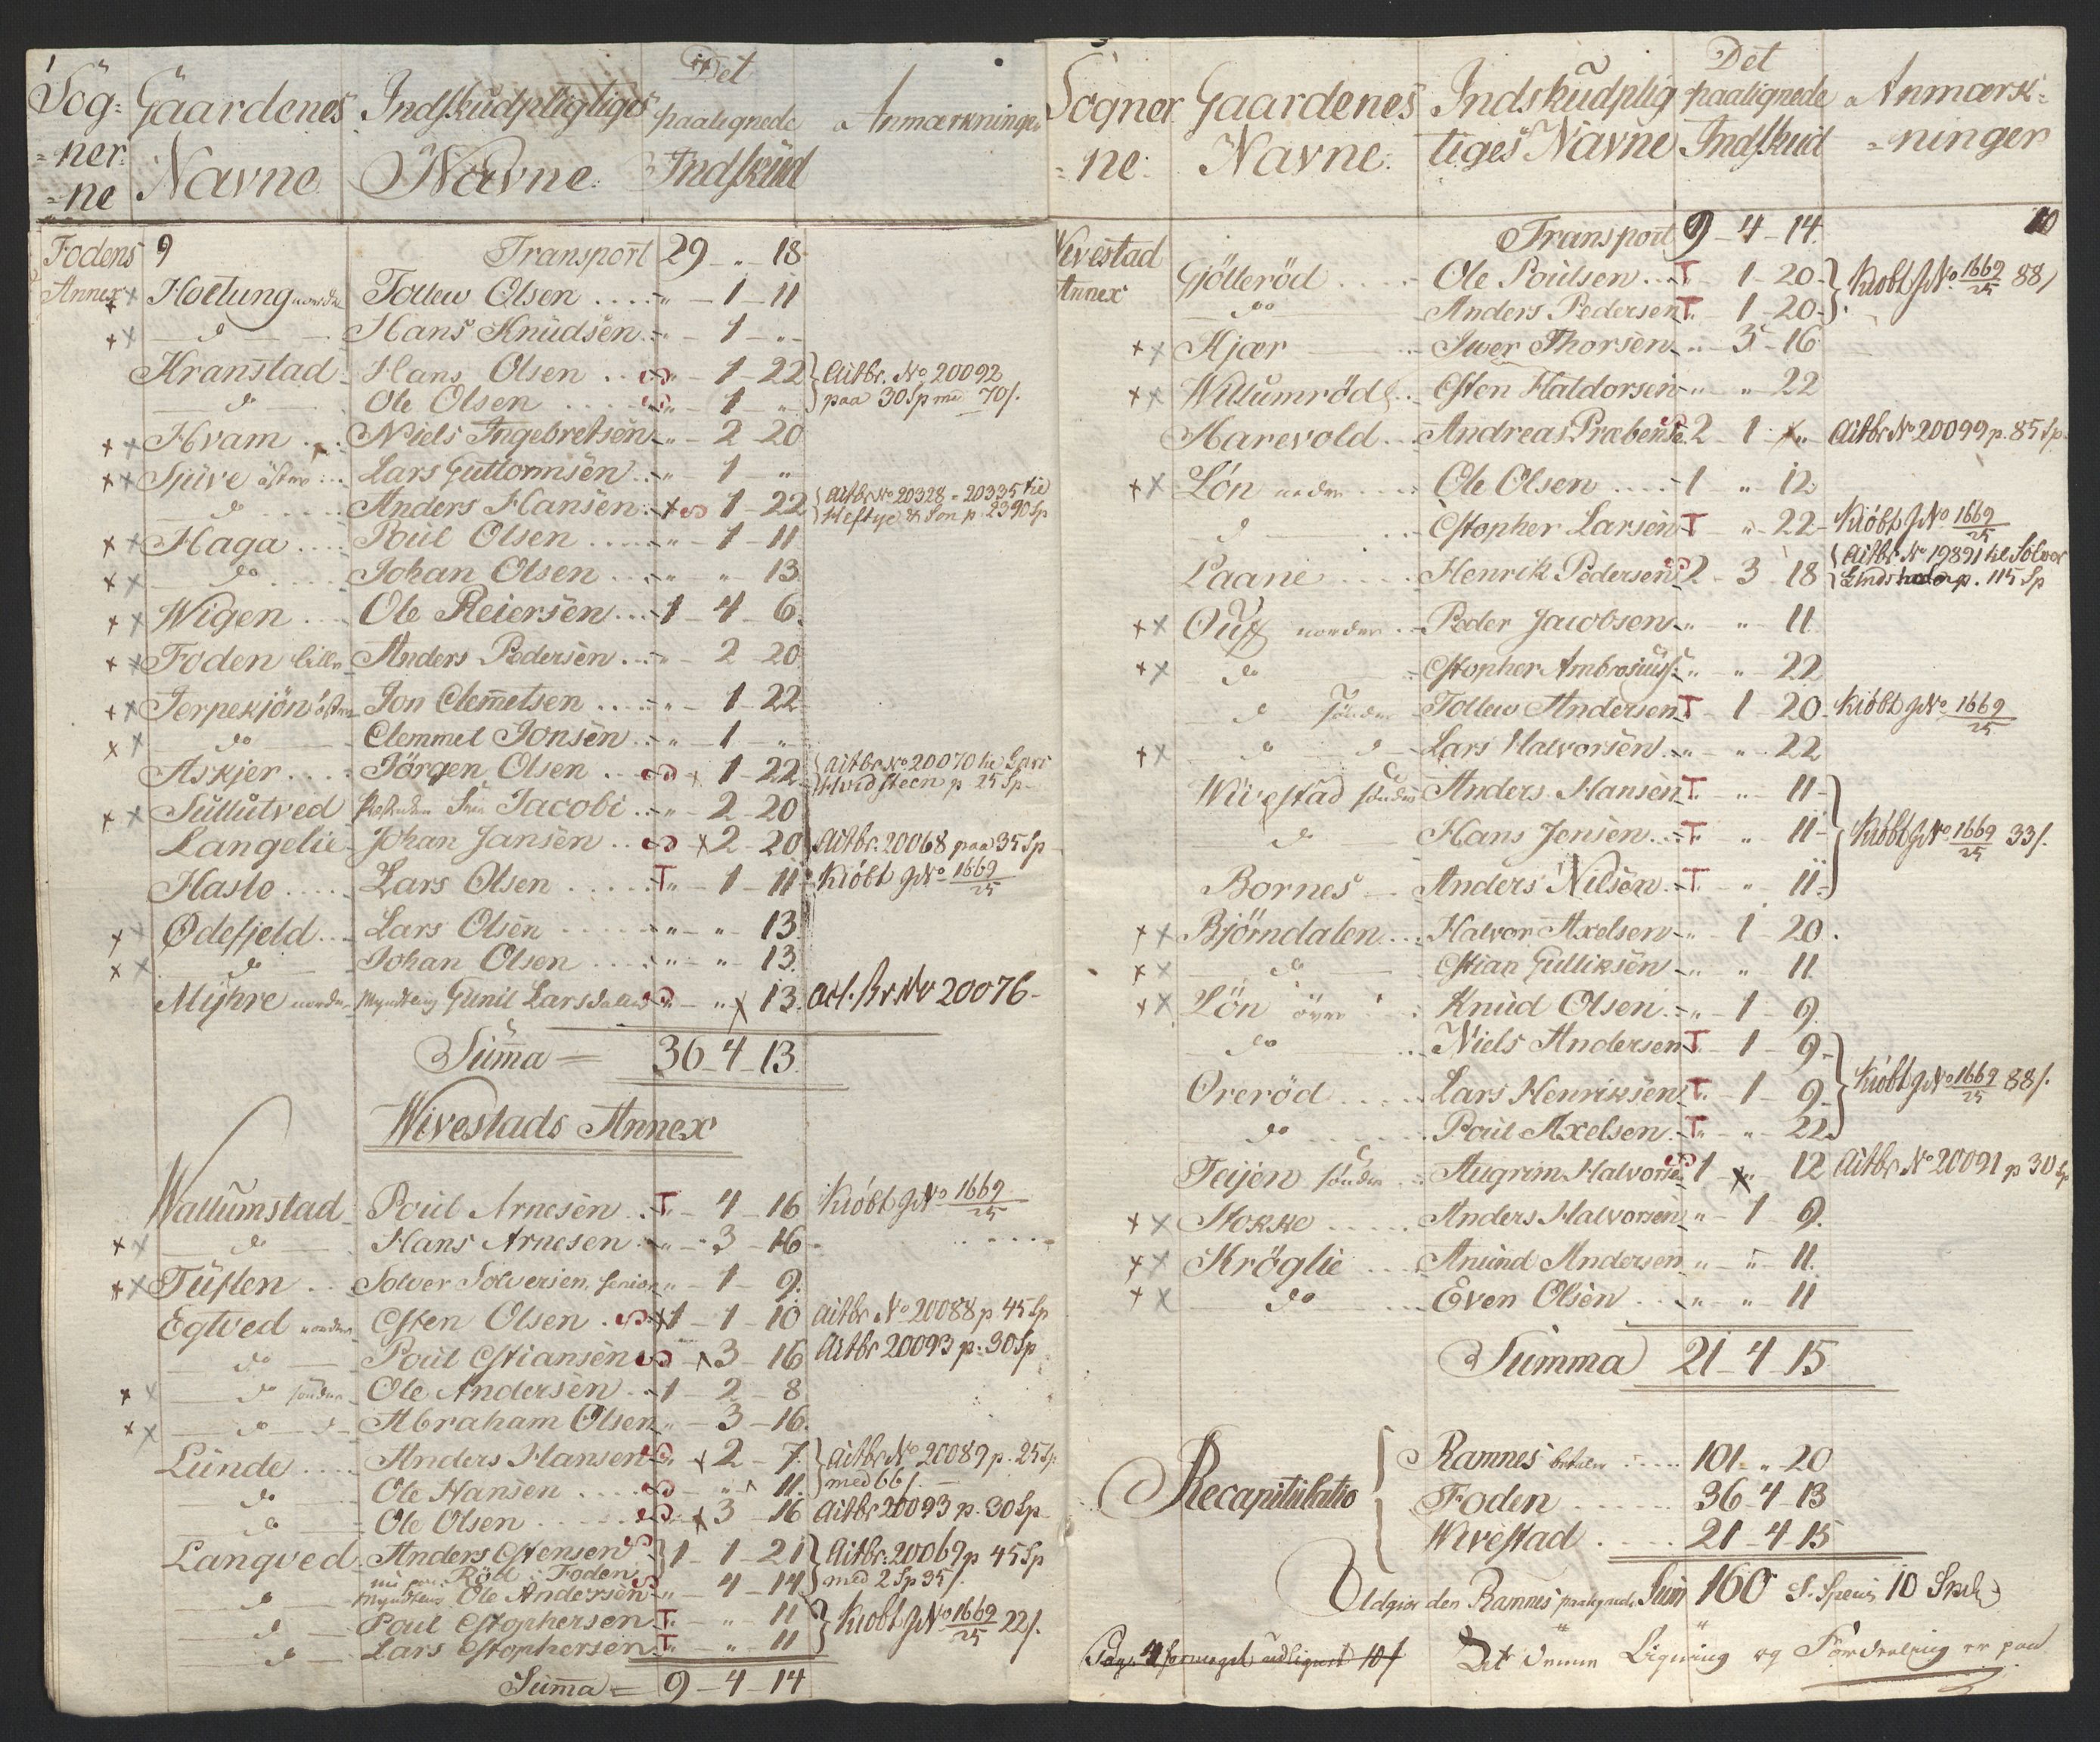 Sög= Gaardenes Indskudpligtiges Det paalignede Anmærkninger
=ner= Navne Navne Indskud
=ne
Fodens 9 Transport 29 - „ - 18
Annex Holtung norder Tollew Olsen .... „ - 1 - 11
do Hans Knudsen „ - 1 - „
Kranstad Hans Olsen .. „ - 1 - 22 Actbr. No 20092
do Ole Olsen .... „ - 1 - „ paa 30 Sp med 70/.
Hvam ... Niels Ingebretsen „ - 2 - 20
Sjüve östre ... Lars Guttormsen .. „ 1 - „
do Anders Hansen „ 1 - 22 Actbr No 20328 - 20335 til
Heftye & Søn p. 2390 Sp
Haga .... Poul Olsen ..... „ - 1 - 11
do Johan Olsen ... „ - „ - 13
Wigen ... Ole Reiersen ... 1 - 4 - 6
Foden lille Anders Pedersen ... „ - 2 - 20
Jerpekjön östre Jon Clemetsen .... „ - 1 - 22
do Clemmet Jonsen .. „ - 1 - „
Askjer .... Jörgen Olsen .. „ 1 - 22 Actbr No 20070 til Lars
Hvidsteen p 25 Sp
Sullutved Jacobi .. „ - 2 - 20
Langelie Johan Jansen .. 2 - 20 Actbr. 20068 paa 35 Sp
Hasle ..... Lars Olsen ..... T „ - 1 - 11 Kiöbt Q No 1669/25
Ødefjeld ... Lars Olsen ..... „ „ - 13
do Johan Olsen .... „ - „ - 13
Myhre norder Myndtling Gunil Larsdatter „ „ 13 Act. Br No 20076 -
Summa = 36 - 4 - 13
Wivestads Annex
Wallumstad Poul Arnesen .. T „ - 4 - 16 Kiöbt Q No 1669/25
do Hans Arnesen „ - 3 - 16
Tüften .. Solver Solversen senior „ - 1 - 9
Egtved norder Esten Olsen . 1 - 1 - 10 Actbr No 20088 p 45 Sp
do Poul Estiansen 3 - 16 Actbr 20093 p. 30 Sp
do sönder Ole Andersen .. 1 - 2 - 8
do do Abraham Olsen „ - 3 - 16
Lunde .... Anders Hansen „ 2 - 7 Actbr No 20089 p. 25 Sp
do Ole Hansen .... „ „ 11 med 66/.
do Ole Olsen ..... „ 3 - 16 Actbr 20093 p. 30 Sp
Langved Anders Estensen 1 - 1 - 21 Actbr. 20069 p 45 Sp
nu paa Röd i Foden
do Myndtling Ole Andersen „ - 4 - 14 med 2 Sp 35/.
do Poul Estophersen T „ - „ 11 Kiöbt Q No 1669/25 22/.
do Lars Estophersen T „ - „ - 11
Summa = 9 - 4 - 14
Sogner Gaardenes Indskudplig Det paalignede Anmærk=
=ne Navne: tiges Navne Indskud =ninger
10
Wivestad Transport 9 - 4 - 14
Annex Gjölleröd .... Ole Poulsen .. T 1 - 20 Kiöbt Q No 1669/25 88/
do Anders Pedersen T „ 1 - 20
Kjær Iwer Thorsen „ 3 - 16
Willumröd Esten Haldorsen „ „ 22
Harevold .. Andreas Præbensen 2 - 1 - „ Actbr No 20099 p. 85 Sp
Lön neder .... Ole Olsen .... 1 „ 12
do Estopher Larsen T „ 22 Kiöbt Q No 1669/25
Paane .... Henrik Pedersen 2 - 3 - 18 Actbr No 19891 til Solver
p. 115 Sp
norder .. Peder Jacobsen „ „ 11
do Estopher Ambrosius: „ - „ - 22
do sönder Tollew Andersen T 1 - 20 Kiöbt Q No 1669/25
do do Lars Halvorsen „ - „ - 22
Wivestad sönder Anders Hansen T „ „ 11
do Hans Jensen ... T „ 11 Kiöbt Q No 1669/25 33/.
Bornes Anders Nilsen T „ 11
Bjørndalen ... Halvor Axelsen „ 1 - 20
do Estian Gulliksen „ „ 11
Lön övre Knud Olsen „ - 1 - 9
do Niels Andersen T 1 - 9
Oreröd .... Lars Henriksen T „ - 1 - 9 Kiöbt Q No 1669/25 88/.
do Poul Axelsen T „ - „ 22
Teijen sönder .. Augrim Halvorsen 1 „ 12 Actbr No 20091 p 30 Sp
Stokke ..... Anders Halvorsen „ - 1 - 9
Kröglie ... Amund Andersen „ - „ - 11
do Even Olsen ... „ - „ - 11
Summa 21 - 4 - 15
Recapitulatio Ramnes ..... 101 - „ 20
Foden ...... 36 - 4 - 13
Wivestad .... 21 - 4 - 15
Udgiør den Ramnes paalignede Sum 160 S. Specier 10
At denne Ligning og Fordeeling er paa